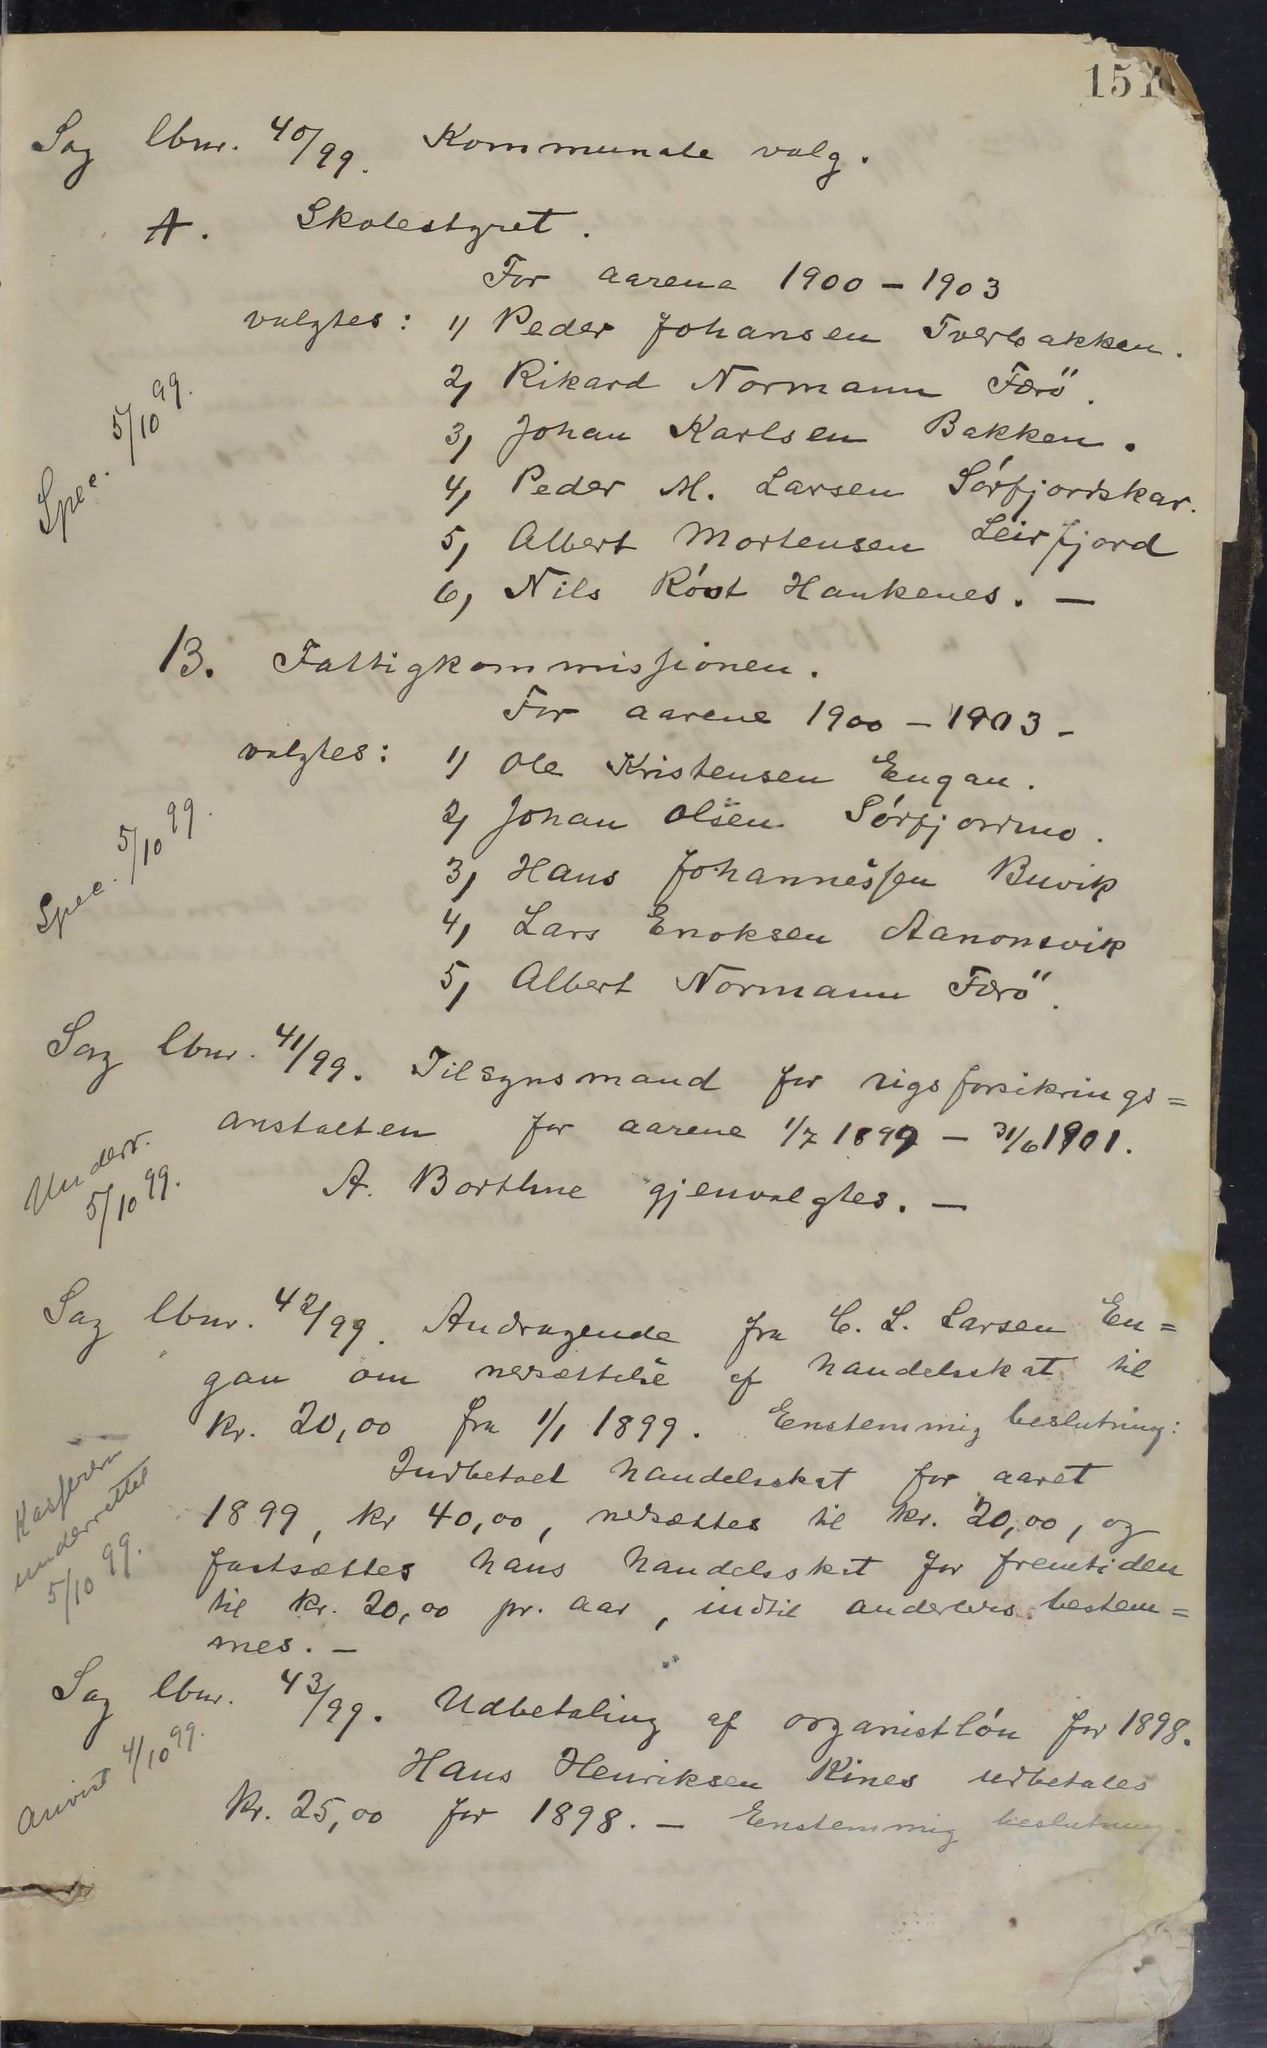 151
Sag lbnr. 40/99. Kommunale valg.
A. Skolestyret.
For aarene 1900 - 1903
valgtes: 1) Peder Johansen Tverbakken.
2) Rikard Normann Færö.
3) Johan Karlsen Bakken.
Spec. 5/10 99.
4) Peder M. Larsen Sórfjordskar.
5) Albert Mortensen Leirfjord
6) Nils Róst Haukenes. —
B. Fattigkommissionen.
For aarene 1900 - 1903 -
valgtes: 1) Ole Kristensen Engan.
2) Johan Olsen Sórfjordmo.
Spec. 5/10 99.
3) Hans Johannessen Buvik
4) Lars Enoksen Aanonsvik
5) Albert Normann Færö.
Sag lbnr. 41/99. Tilsynsmand for rigsforsikrings=
anstalten for aarene 1/7 1899 - 31/6 1901.
Underr. 5/10 99.
A. Borthne gjenvalgtes. —
Sag lbnr. 42/99. Andragende fra C. L. Larsen En=
gan om nedsættelse af handelsskat til
kr. 20,00 fra 1/1 1899. Enstemmig beslutning:
Indbetalt handelsskat for aaret
Kasseren
underrettet
5/10 99.
1899, kr 40,00, nedsættes til kr. 20,00, og
fastsættes hans handelsskat for fremtiden
til kr. 20,00 pr. aar, indtil anderledes bestem=
mes. —
Sag lbnr. 43/99. Udbetaling af organistlón for 1898.
Anvist 4/10 99.
Hans Henriksen Kines udbetales
kr. 25,00 for 1898. — Enstemmig beslutning.